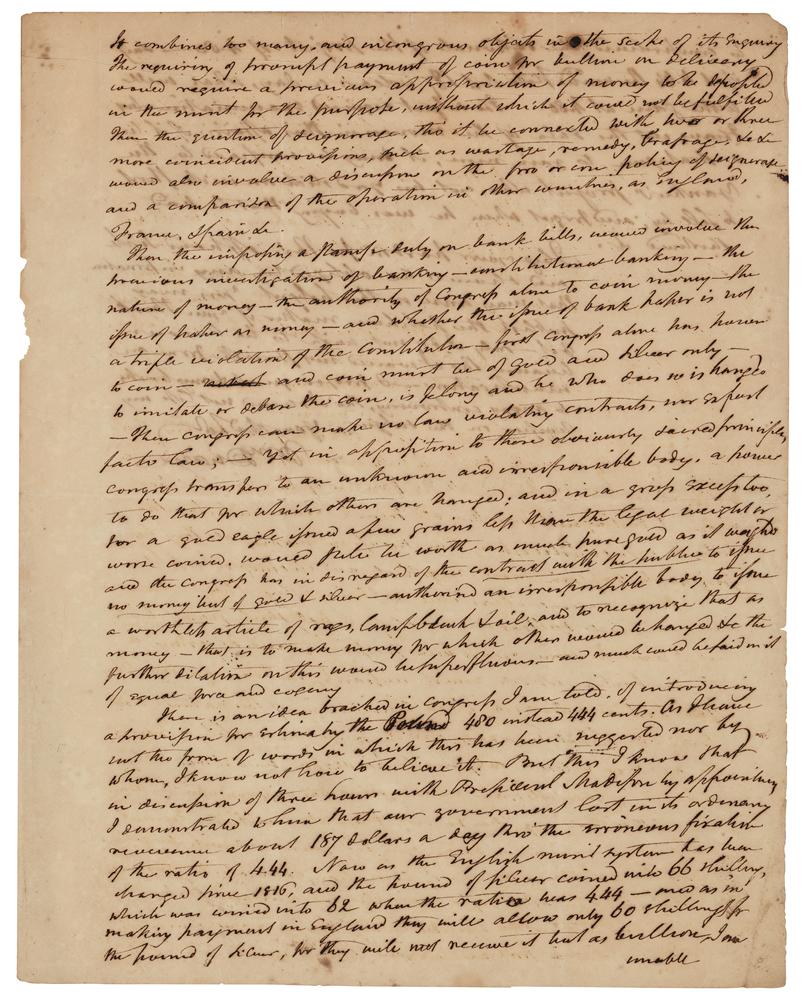 It combines too many, and incongrous objects in the scope of its Enquiry
The requiring of prompt payment of coin for bullion on delivery
would require a previous appropriation of money to be deposited
in the mint for the purpose, without which it could not be fulfilled
Then the question of seignorage, tho it be connected with two or three
more coincident provisions, such as wastage, remedy, &c &c
would also involve a discussion on the pro or con policy of seignorage
and a comparison of the operation in other countries, as England,
France, Spain &c.
Then the imposing a stamp duty on bank bills, would involve the
previous investigation of banking – constitutional banking – the
nature of money – the authority of Congress alone to coin money – the
issue of paper as money – and whether the issue of bank paper is not
a triple violation of the Constitution – first Congress alone has power
to coin – and coin must be of gold and silver only –
to imitate or debase the coin, is felony and he who does so is hanged
– Then congress can make no law violating contracts, nor expost
facto law; – yet in opposition to these obviously sacred principles,
congress transfers to an unknown and irresponsible body, a power
to do that for which others are hanged; and in a gross excess too,
for a gold eagle issued a few grains less than the legal weight or
worse coined, would still be worth as much pure gold as it weighed
and the Congress has in disregard of the contract with the public to issue
no money but of gold & silver – authorized an irresponsible body to issue
a worthless article of rags, lampblack & oil, and to recognize that as
money – that is to make money for which others would be hanged &c the
further dilation on this would be superfluous – and much could be said on it
of equal force and cogency
There is an idea broached in Congress I am told, of introducing
a provision for estimating the Pound 480 instead 444 cents. As I have
not the form of words in which this has been suggested nor by
whom, I know not how to believe it. But this I know that
in discussion of three hours with President Madison by appointment
I demonstrated to him that our government lost in its ordinary
revenue about 187 dollars a day thro the erroneous fixation
of the ratio of 4.44. Now as the English mint system has been
changed since 1816, and the pound of silver coined into 66 shillings,
which was coined into 62 when the ratio was 444 – and as in
making payment in England they will allow only 60 shillings for
the pound of silver, for they will not receive it but as bullion, I am
unable